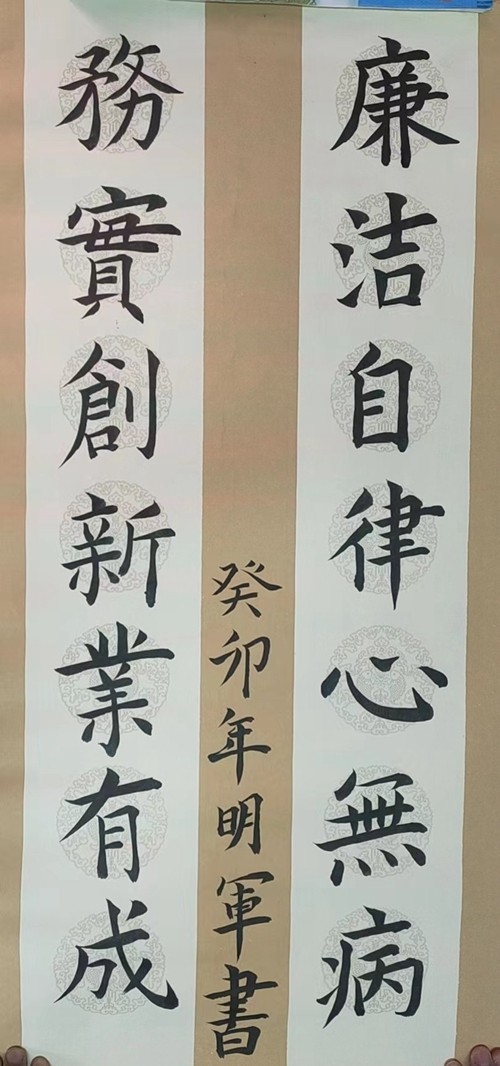 廉洁自律心無病
務實創新業有成
癸卯年明軍書